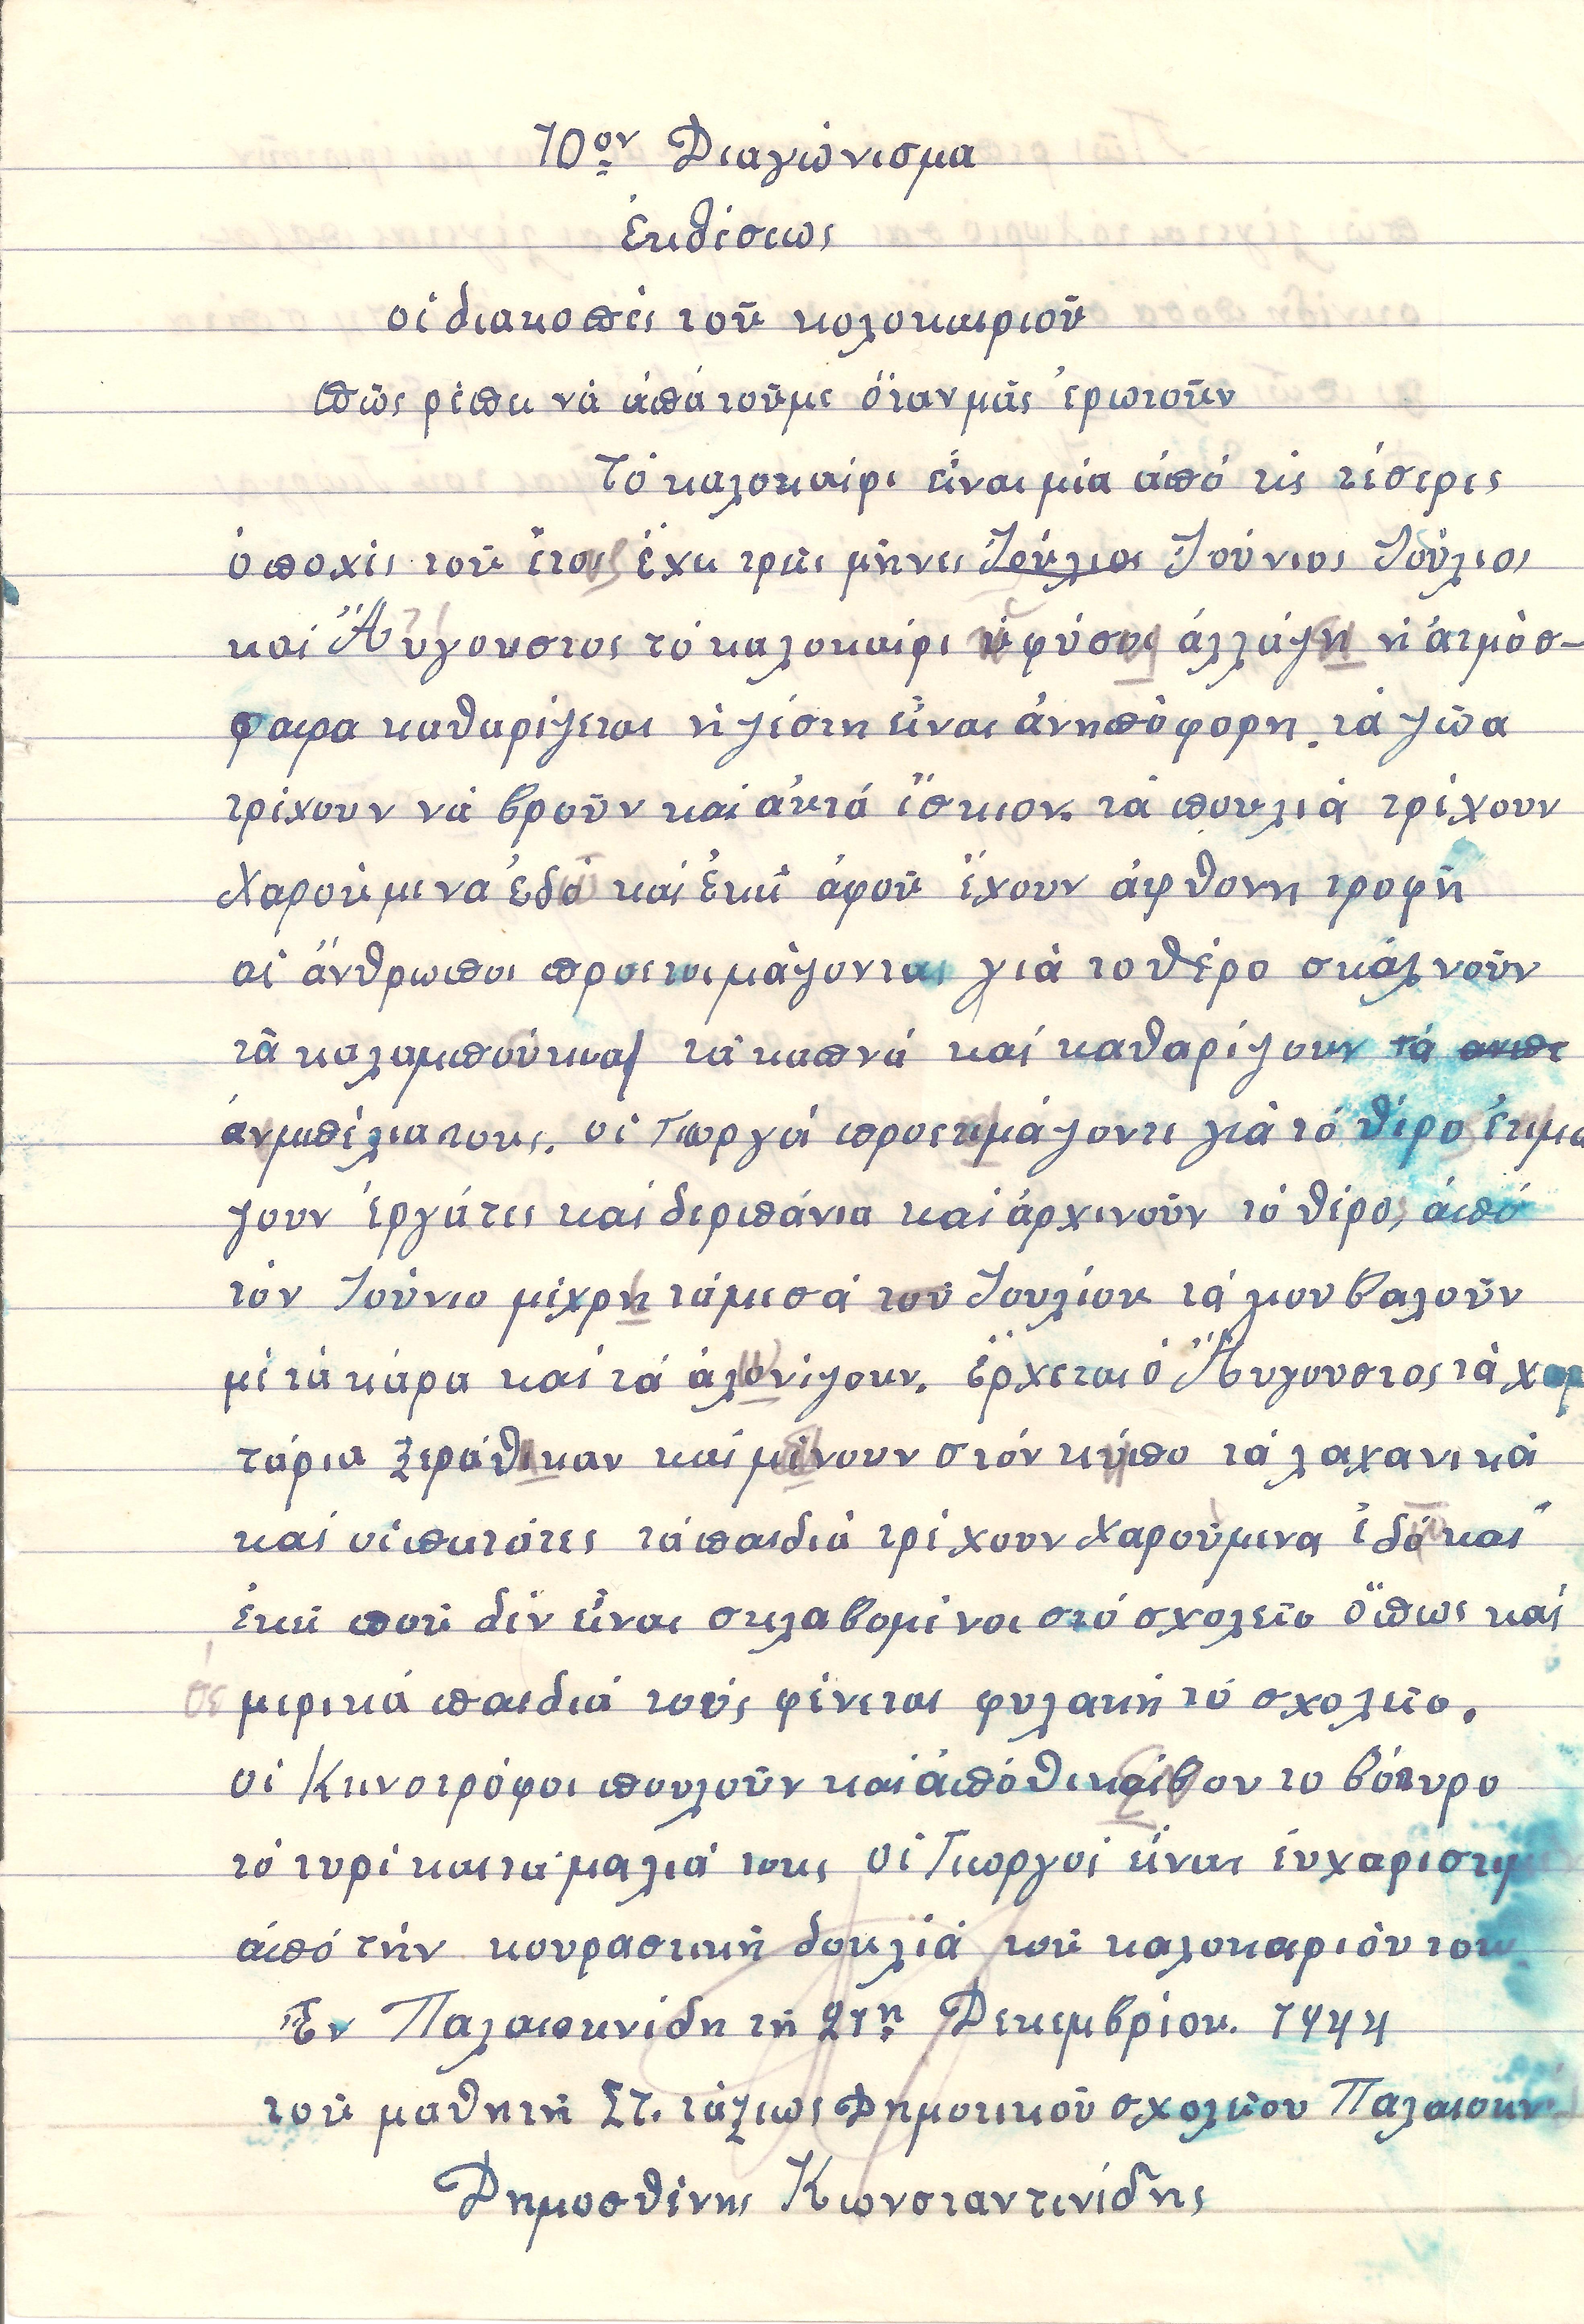 10ον Διαγώνισμα
ἐκθέσεως
οἱ διακοπές τοῦ κολοκαιριοῦ
πῶς ρέπει νὰ ἀπάτοῦμε ὅταν μᾶς ἐρωτοῦν
Τό καλοκαίρι εἶναι μία ἀπό τίς τέσερες
ὁ ποχές τοῦ ἔτους ἔχει τρεῖς μῆνες Ἰούλιος Ἰούνιος Ἰούλιος
καί Ἄυγουστος τό καλοκαίρι ἡ φύσις ἀλλάζη ἡ ἀτμόσ-
φαιρα καθαρίζεται ἡ ζέστη εἶναι ἀνηπόφορη. τά ζῶα
τρέχουν νὰ βροῦν καί ἀυτά ἴσκιον. τὰ πουλιὰ τρέχουν
χαρούμενα ἐδό καί ἐκεῖ ἀφοῦ ἔχουν ἀφθονη τροφῆ
οἱ ἄνθρωποι προετοιμάζονται γιὰ το θέρο σκάλνοῦν
τὰ καλαμπούκια τά καπνά καί καθαρίζουν τά
ἀνμπέλια τους. οἱ Γεωργοί προετιμάζοντε γιὰ τό θέρο ἑτιμα
ζουν ἐργάτες καί δερπάνια καί ἀρχινοῦν τό θέρος ἀπό
τόν Ἰούνιο μέχρη τάμεσά τοῦ Ἰουλίου τά κουβαλοῦν
μέ τά κάρα καί τά ἁλονίζουν. ἔρχεται ὁ Ἄυγουστος τὰ χορ
τάρια ξεράθικαν καί μένουν στόν κύπο τά λαχανικά
καί οἱ πατάτες τά παιδιά τρέχουν χαρούμενα ἐδό και
ἐκεῖ ποῦ δέν εἶναι σκλαβομένοι στό σχολεῖο ὅπως καί
σέ μερικά παιδιά τούς φένεται φυλακή τό σχολεῖο.
οἱ Κηνοτρόφοι πουλοῦν καί ἀπόθικέβουν το βότυρο
τό τυρί και τά μαλιά τους οἱ Γεωργοί εἶναι ἐυχαριστημ
ἀπό τήν κουραστική δουλιά τοῦ καλοκαριόυ του
Ἐν Παλαιοκνίδη τῆ 21η Δεκεμβρίου. 1944
τοῦ μαθητῆ ΣΤ. τάξεως Δημοτικοῦ σχολείου Παλαιοκν
Δημοσθένης Κωνσταντινίδης